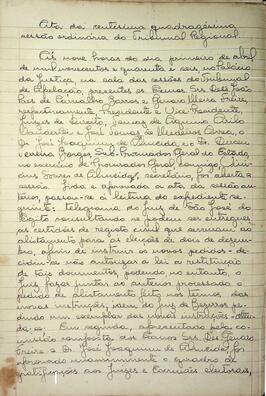 Ata da centesima quadragésima
sessão ordinária do Tribunal Regional.
Ás nove horas do dia primeiro de abril
de mil novecentos e quarenta e seis, no Palácio
da Justiça, na sala das sessões do Tribunal
de Apelação, presentes os Exmos Srs. Des. João
Paes de Carvalho Barros e Genaro Freire,
respectivamente, Presidente e Vice-Presidente,
Juizes de Direito,
e José Tomás de Medeiros Correa, e
Dr. José Joaquim de Almeida e o Dr.
Procurador Geral do Estado
no exercício de Procurador Geral
Soares de Almeida, secretário, foi aberta a
sessão. Lida e aprovada a ata da sessão an-
terior, passou-se á leitura do expediente se-
guinte: telegramas do juiz de São José do
Egito consultando se podem ser entregues
as certidões de registo civil que serviram ao
alistamento para as eleições de dois de dezem-
bro, afim de instruir os novos pedidos - de-
cidiu-se não autorizar a lei a restituição
de tais documentos, podendo, no entanto, o
juiz fazer juntar ao anterior processado o
pedido de alistamento feito nos termos das
novas instruções; idem, do juiz de Bezerros pe-
dindo um exemplar das novas instruções - aten-
da-se. Em seguida, apresentado pela co-
missão composta dos Exmos Srs. Des. Genaro
Freire e Dr. José Joaquim de Almeida, foi
aprovado unanimemente o quadro de
gratificações aos Juizes e Escrivães eleitorais,